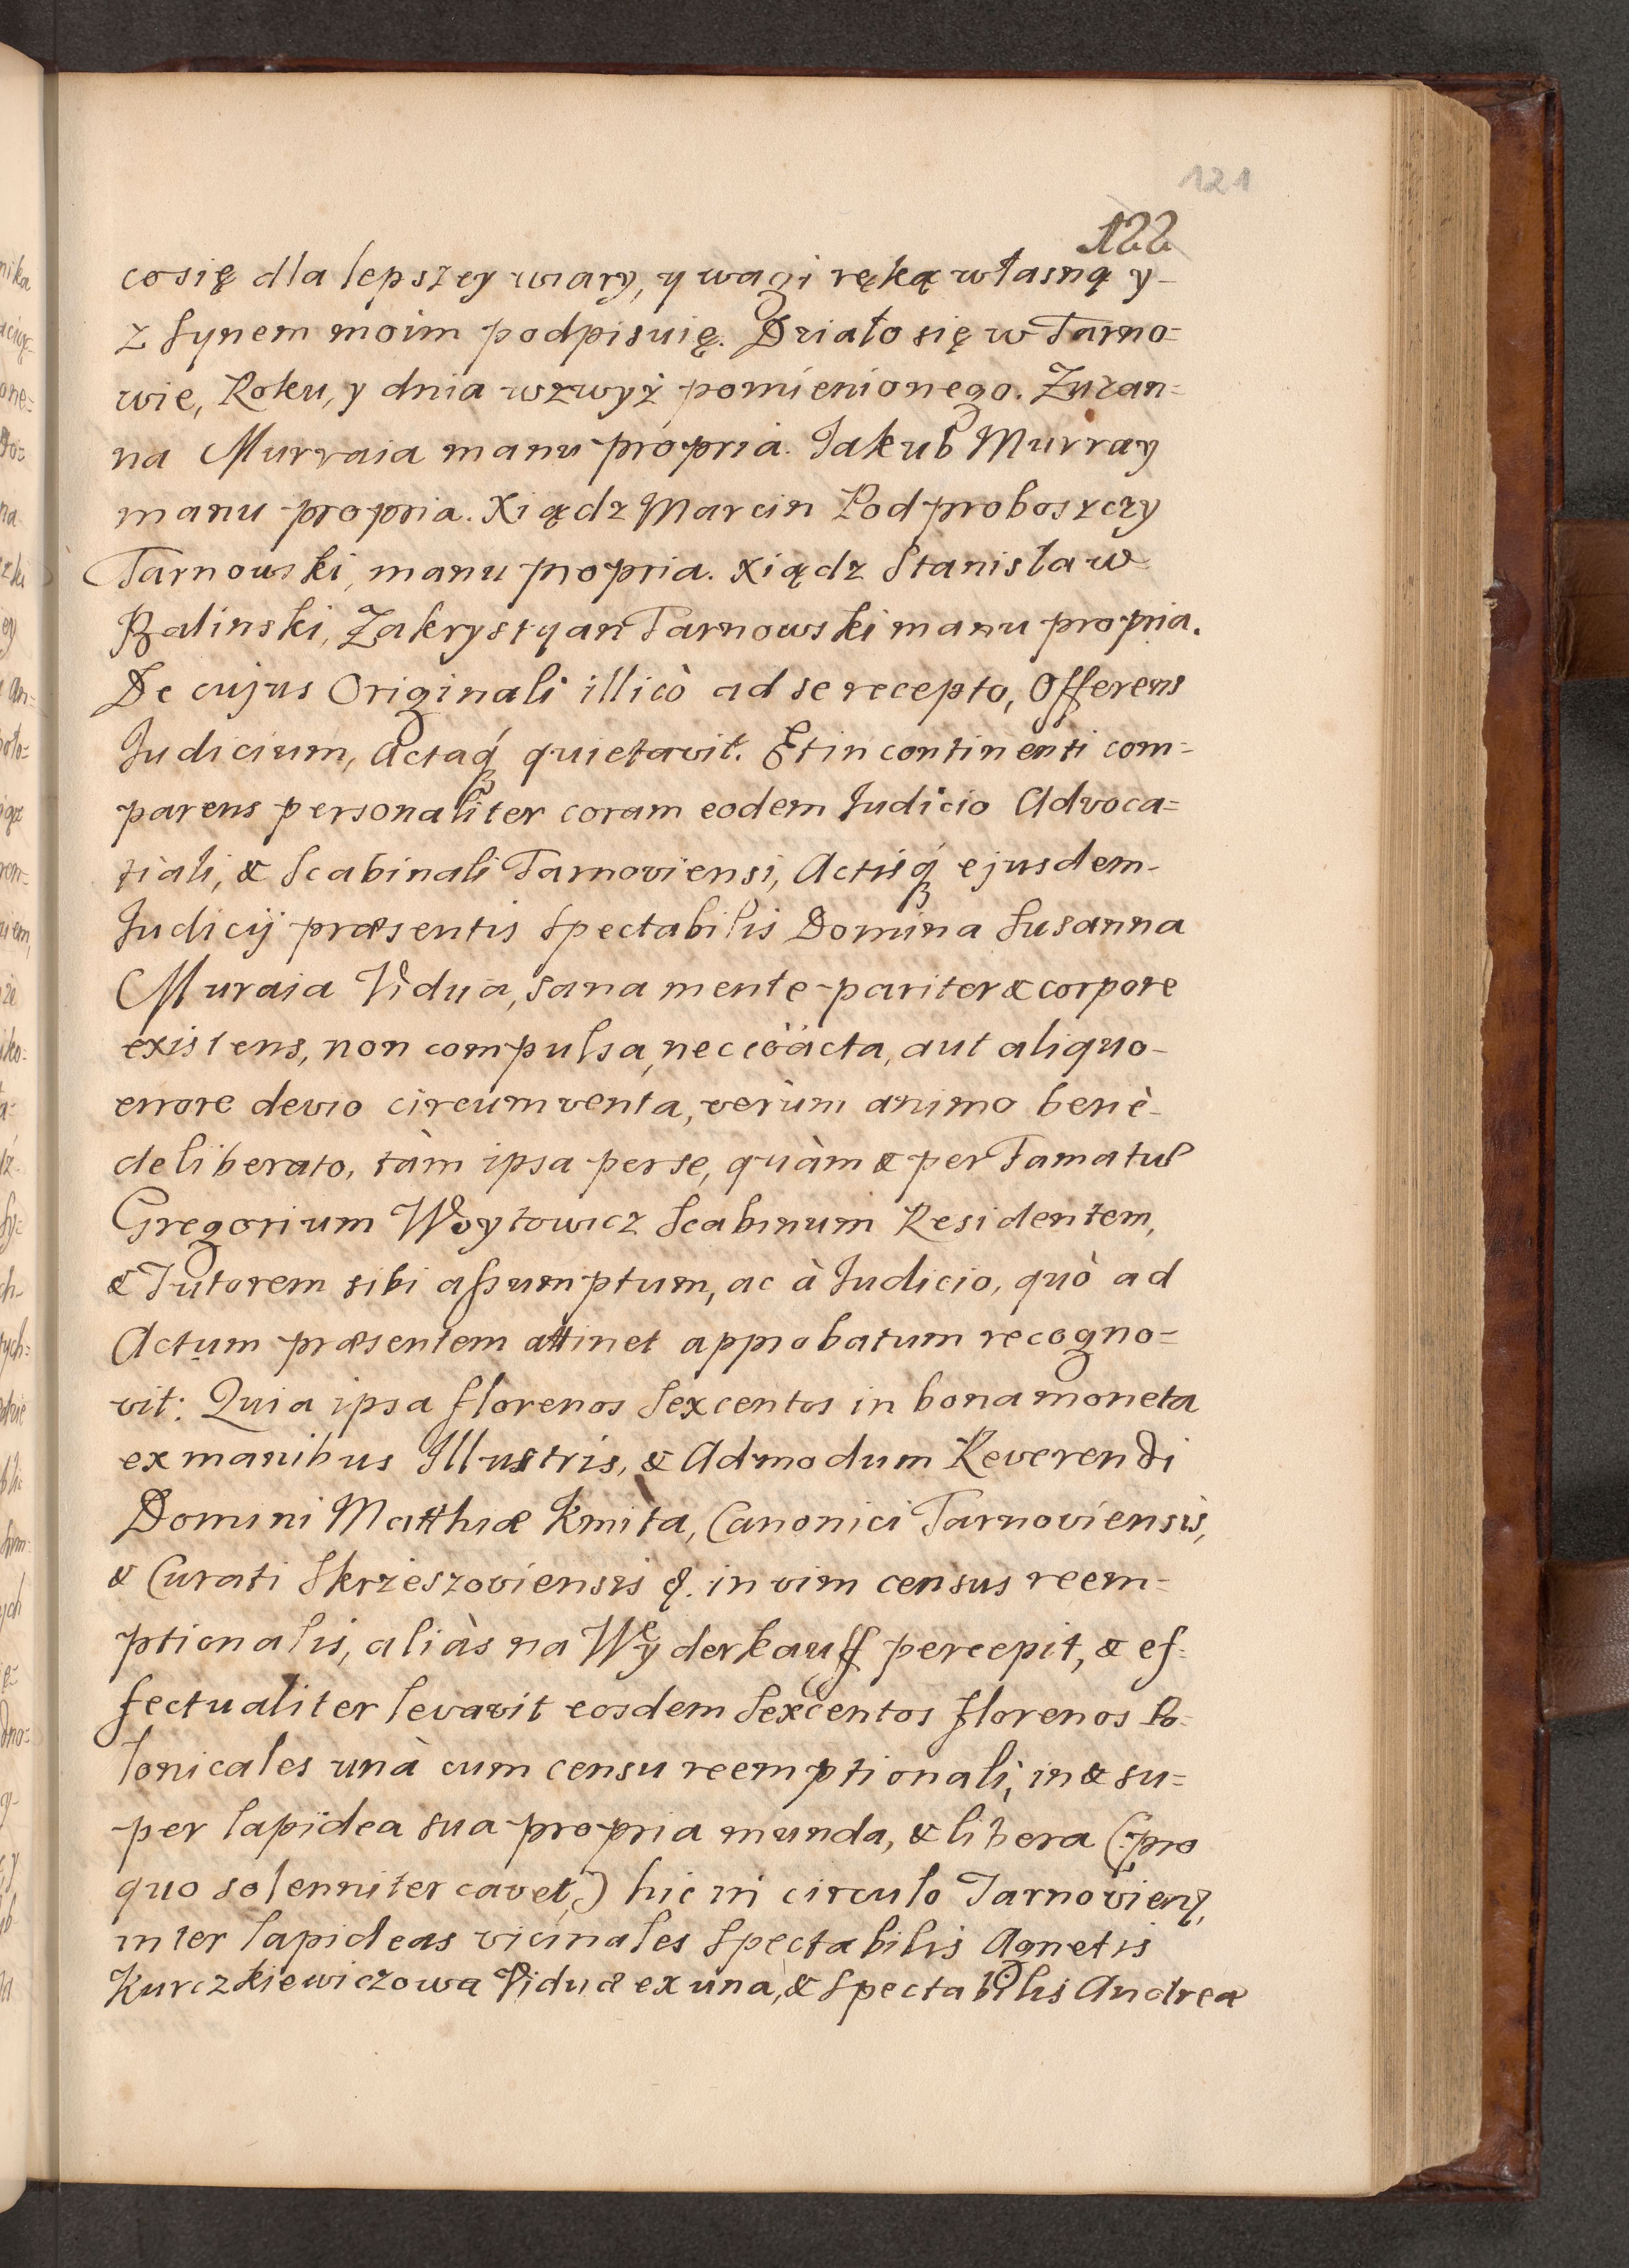 121
122
co się dla lepszey wiary, y wagi ręką własną y-
z Synem moim podpisuię. Działo się w Tarno=
wie, Roku, y dnia wzwyż pomienionego. Zuzan=
na Murraia manu propria. Jakub Murray
manu propria. Xiądz Marcin Podproboszczy
Tarnowski, manu propria. Xiądz Stanisław
Balinski, Zakrystyan Tarnowski manu propria.
De cujus Originali illicò ad se recepto, Offerens
Judicium, Actaq́ʒ quietavit. Et in continenti com=
parens personaliter coram eodem Judicio Advoca=
tiali, & Scabinali Tarnoviensi, Actisq́ʒ ejusdem-
Judicÿ præsentis Spectabilis Domina Susanna
Muraia Vidua, sana mente pariter & corpore
existens, non compulsa, nec cöäcta, aut aliquo-
errore devio circumventa, verùm animo benè-
deliberato, tàm ipsa per se, quàm & per Famatum
Gregorium Woytowicz Scabinum Residentem,
& Tutorem sibi assumptum, ac à Judicio, quò ad
Actum præsentem attinet approbatum recogno=
vit: Quia ipsa florenos Sexcentos in bona moneta
ex manibus Illustris, & Admodum Reverendi
Domini Matthiæ Kmita, Canonici Tarnoviensis,
& Curati Skrzeszoviensis in vim census reem=
ptionalis, aliàs na Weyderkauff percepit, & ef=
fectualiter levavit eosdem Sexcentos florenos Po=
lonicales unà cum censu reemptionali, in & su=
per lapidea sua propria munda, & libera (:pro
quo solenniter cavet,) hic in circulo Tarnovien,
inter lapideas vicinales Spectabilis Agnetis
Kurczkiewiczowa Viduæ ex una, & Spectabilis Andreæ